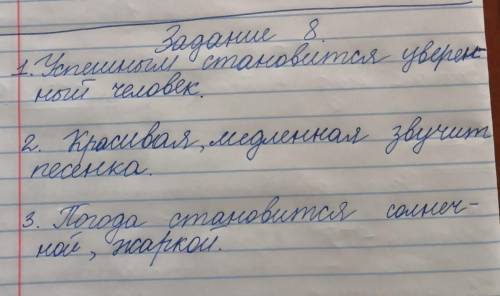 Задание 8.
1. Успешным становится уверен-
ный человек.
2. Красивая, медленная звучит
песенка.
3. Погода становится солнеч-
ной, жаркой.